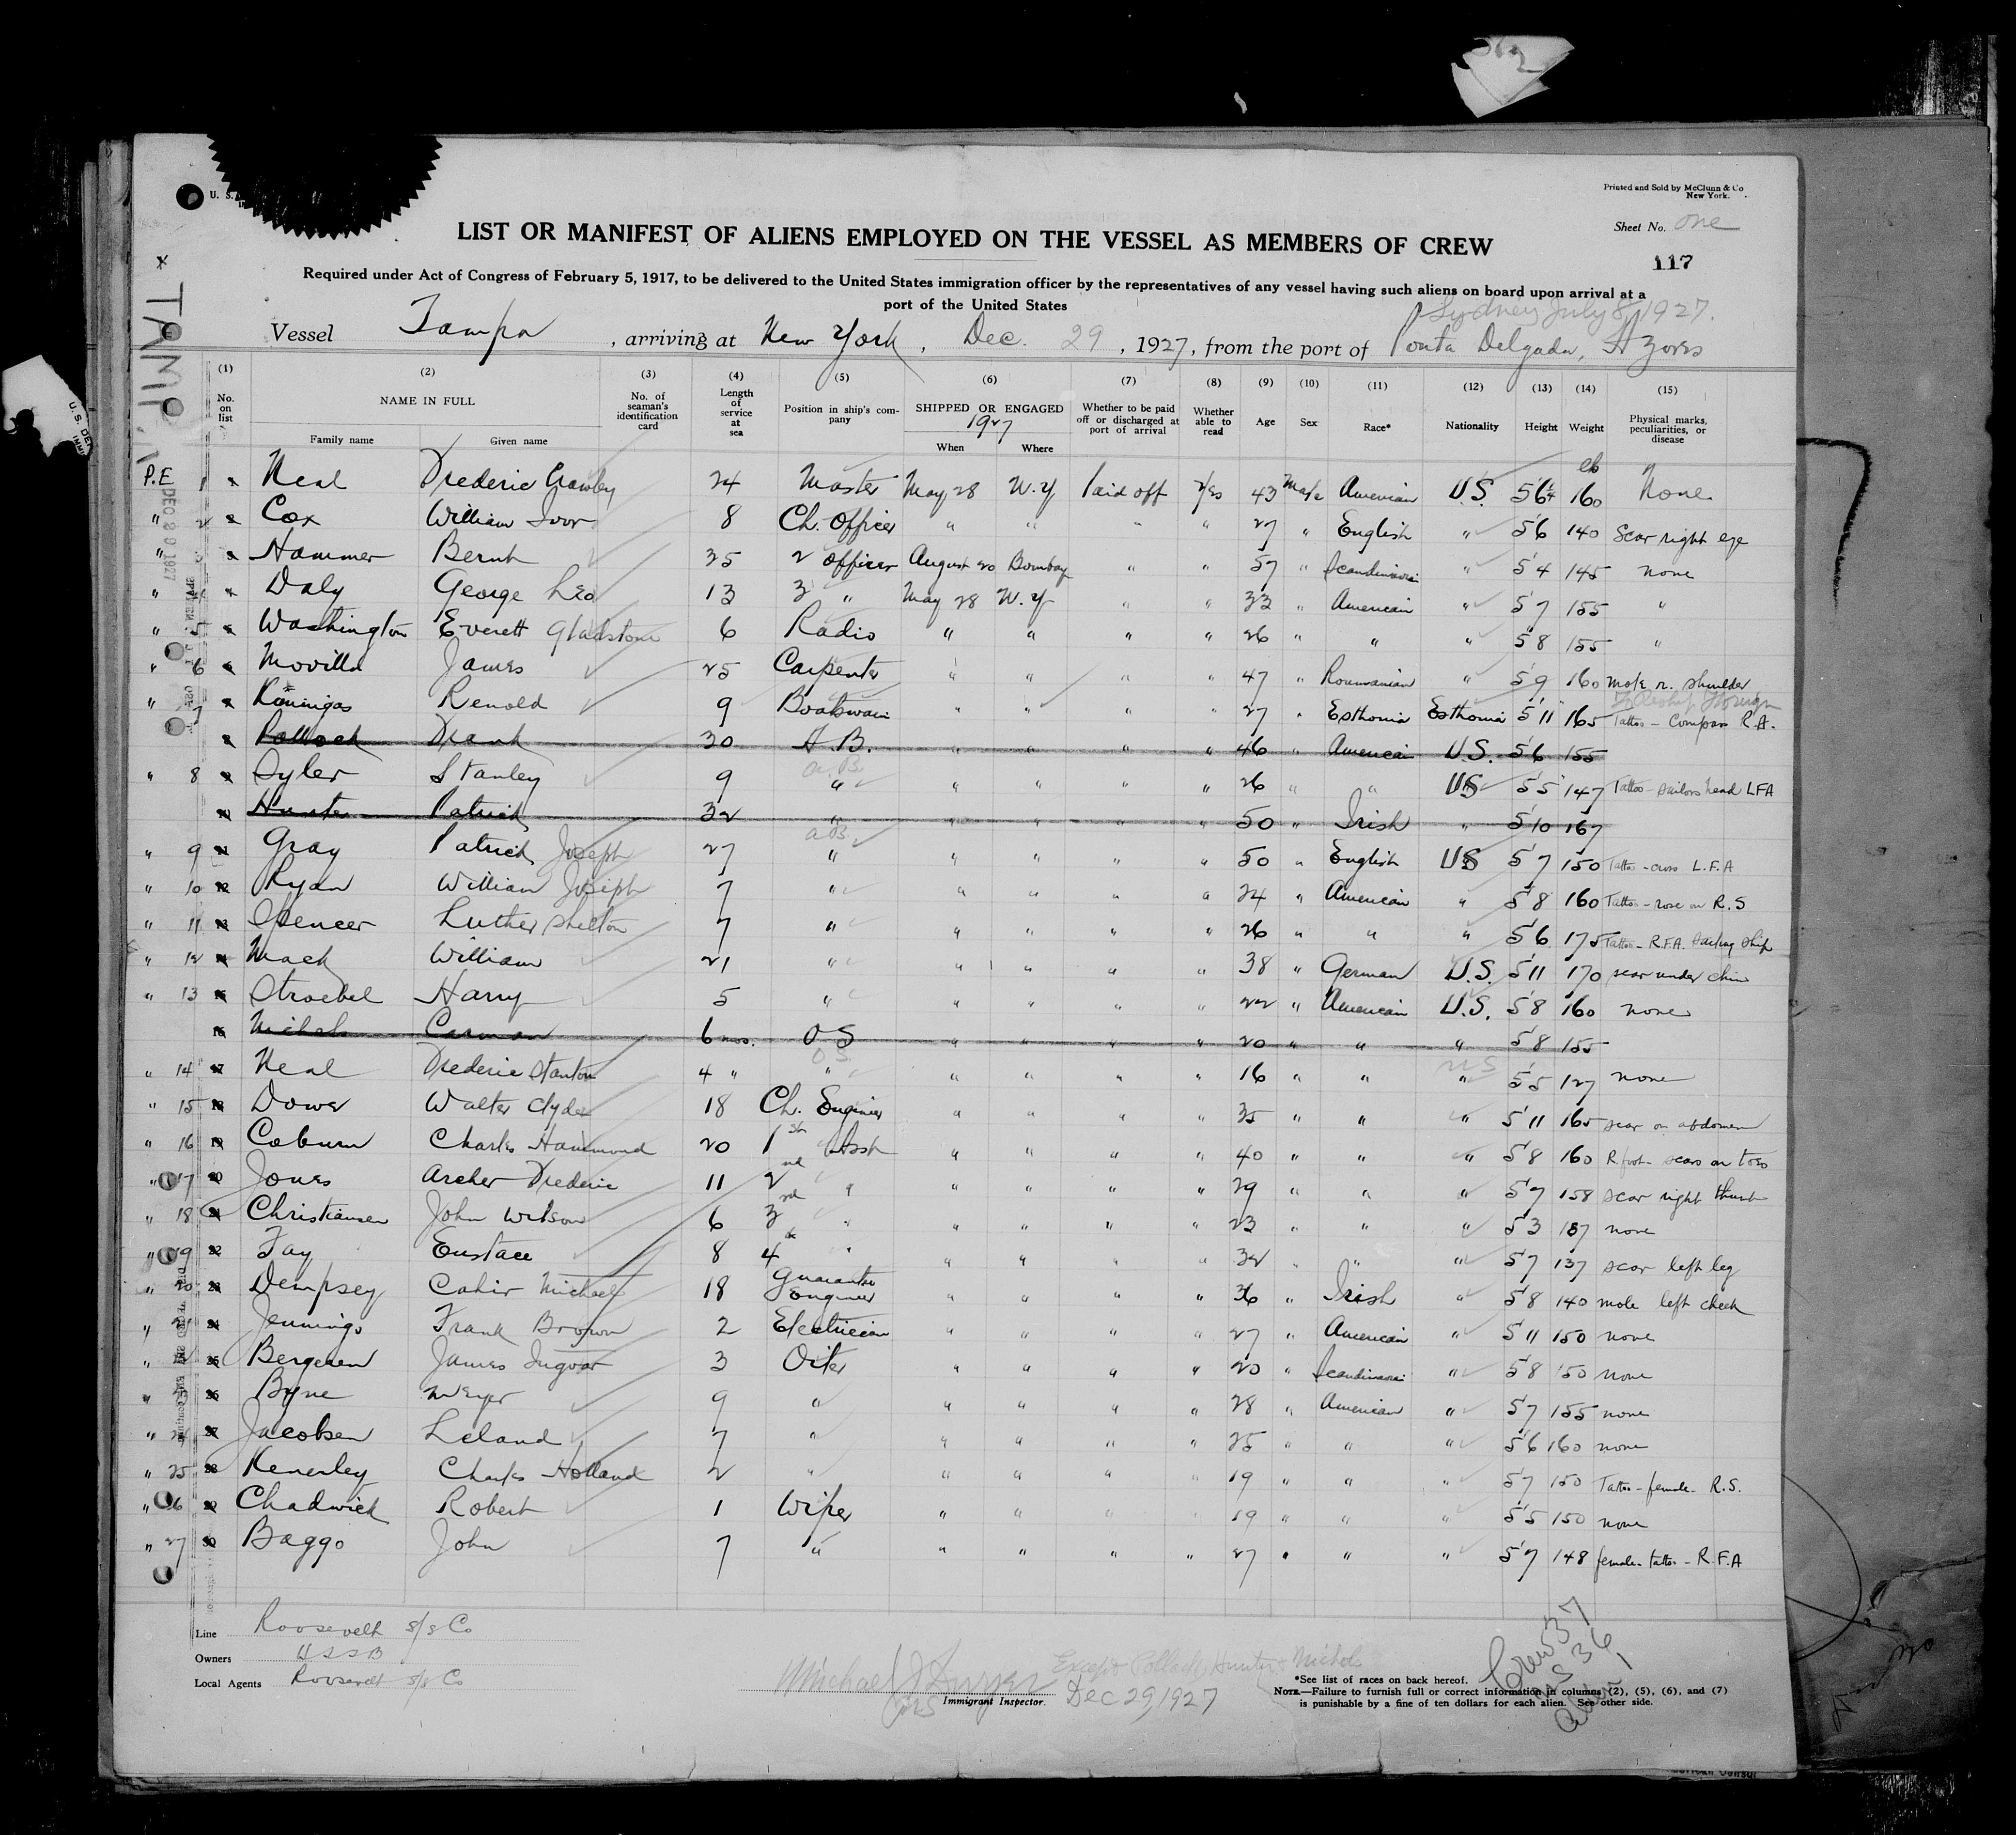 Printed and Sold by McClunn & Co
New York.
U. S.
Sheet No. One
LIST OR MANIFEST OF ALIENS EMPLOYED ON THE VESSEL AS MEMBERS OF CREW
117
Required under Act of Congress of February 5, 1917, to be delivered to the United States immigration officer by the representatives of any vessel having such aliens on board upon arrival at a
port of the United States
Sydney July 8, 1927.
Vessel Tampa, arriving at New York, Dec. 29, 1927, from the port of Ponta Delgada, Azores
(1) (2) (3) (4) (5) (6) (7) (8) (9) (10) (11) (12) (13) (14) (15)
No. on list NAME IN FULL Family name Given name No. of seaman's identification card Length of service at sea Position in ship's company SHIPPED OR ENGAGED 1927 When Where Whether to be paid off or discharged at port of arrival Whether able to read Age Sex Race* Nationality Height Weight Physical marks, peculiarities, or disease
P.E 1 Neal Frederic Crawley 24 Master May 28 N.Y Paid off Yes 43 Male American U.S. 5'6¼ 160 lb None
" 2 Cox William Ivor 8 Ch. Officer " " " " 27 " English " 5'6 140 Scar right eye
" Hammer Bernt 35 2 Officer August 20 Bombay " " 57 " Scandinavian " 5'4 145 none
" Daly George Leo 13 3 " May 28 N.Y " " 33 " American " 5'7 155 "
" 5 Washington Everett Gladstone 6 Radio " " " " 26 " " " 5'8 155 "
" 6 Movilla James 25 Carpenter " " " " 47 " Roumanian " 5'9 160 mole r. shoulder
" 7 Konnigas Renold 9 Boatswain " " " " 27 " Esthonia Esthonia 5'11 165 Tattoo - Compass R.A.
Pollock Frank 30 A.B. " " " " 46 " American U.S. 5'6 155
" 8 Syler Stanley 9 " " " " " 26 " " US 5'5 147 Tattoo - sailors head LFA
Hunter Patrick 32 " " " " " 50 " Irish " 5'10 167
" 9 Gray Patrick Joseph 27 " " " " " 50 " English US 5'7 150 Tattoo - cross L.F.A
" 10 Ryan William Joseph 7 " " " " " 24 " American " 5'8 160 Tattoo - rose on R.S
" 11 Spencer Luther Shelton 7 " " " " " 26 " " " 5'6 175 Tattoo - R.F.A. Sailing Ship
" 12 Mack William 21 " " " " " 38 " German U.S. 5'11 170 scar under chin
" 13 Stroebel Harry 5 " " " " " 22 " American U.S. 5'8 160 none
16 Nichols Carman 6 mos. O.S " " " " 20 " " " 5'8 155
" 14 Neal Frederic Stanton 4 " " " " " " 16 " " " 5'5 127 none
" 15 Dower Walter Clyde 18 Ch. Engineer " " " " 35 " " " 5'11 165 scar on abdomen
" 16 Coburn Charles Hammond 20 1st Asst " " " " 40 " " " 5'8 160 R. foot - scars on toes
" 17 Jones Archer Frederic 11 2nd " " " " " 29 " " " 5'7 158 scar right thumb
" 18 Christiansen John Wilson 6 3rd " " " " " 23 " " " 5'3 137 none
" 19 Fay Eustace 8 4th " " " " " 32 " " " 5'7 137 scar left leg
" 20 Dempsey Cahir Michael 18 Guarantee Engineer " " " " 36 " Irish " 5'8 140 mole left cheek
" 21 Jennings Frank Brown 2 Electrician " " " " 27 " American " 5'11 150 none
" Bergesen James Ingvar 3 Oiler " " " " 20 " Scandinavian " 5'8 150 none
" 23 Byne Meyer 9 " " " " " 28 " American " 5'7 155 none
" 24 Jacobsen Leland 7 " " " " " 25 " " " 5'6 160 none
" 25 Kenerley Charles Holland 2 " " " " " 19 " " " 5'7 150 Tattoo - female - R.S.
" 26 Chadwick Robert 1 Wiper " " " " 19 " " " 5'5 150 none
" 27 Baggo John 7 " " " " " 27 " " " 5'7 148 female - tattoo - R.F.A
Line Roosevelt S/S Co
Owners U S S B
Local Agents Roosevelt S/S Co
Except Pollack Hunter Nichols
Michael J
Immigrant Inspector. Dec 29, 1927
*See list of races on back hereof.
NOTE.—Failure to furnish full or correct information in columns (2), (5), (6), and (7)
is punishable by a fine of ten dollars for each alien. See other side.
Crew 37
US 36
Alien 1
DEC 29 1927